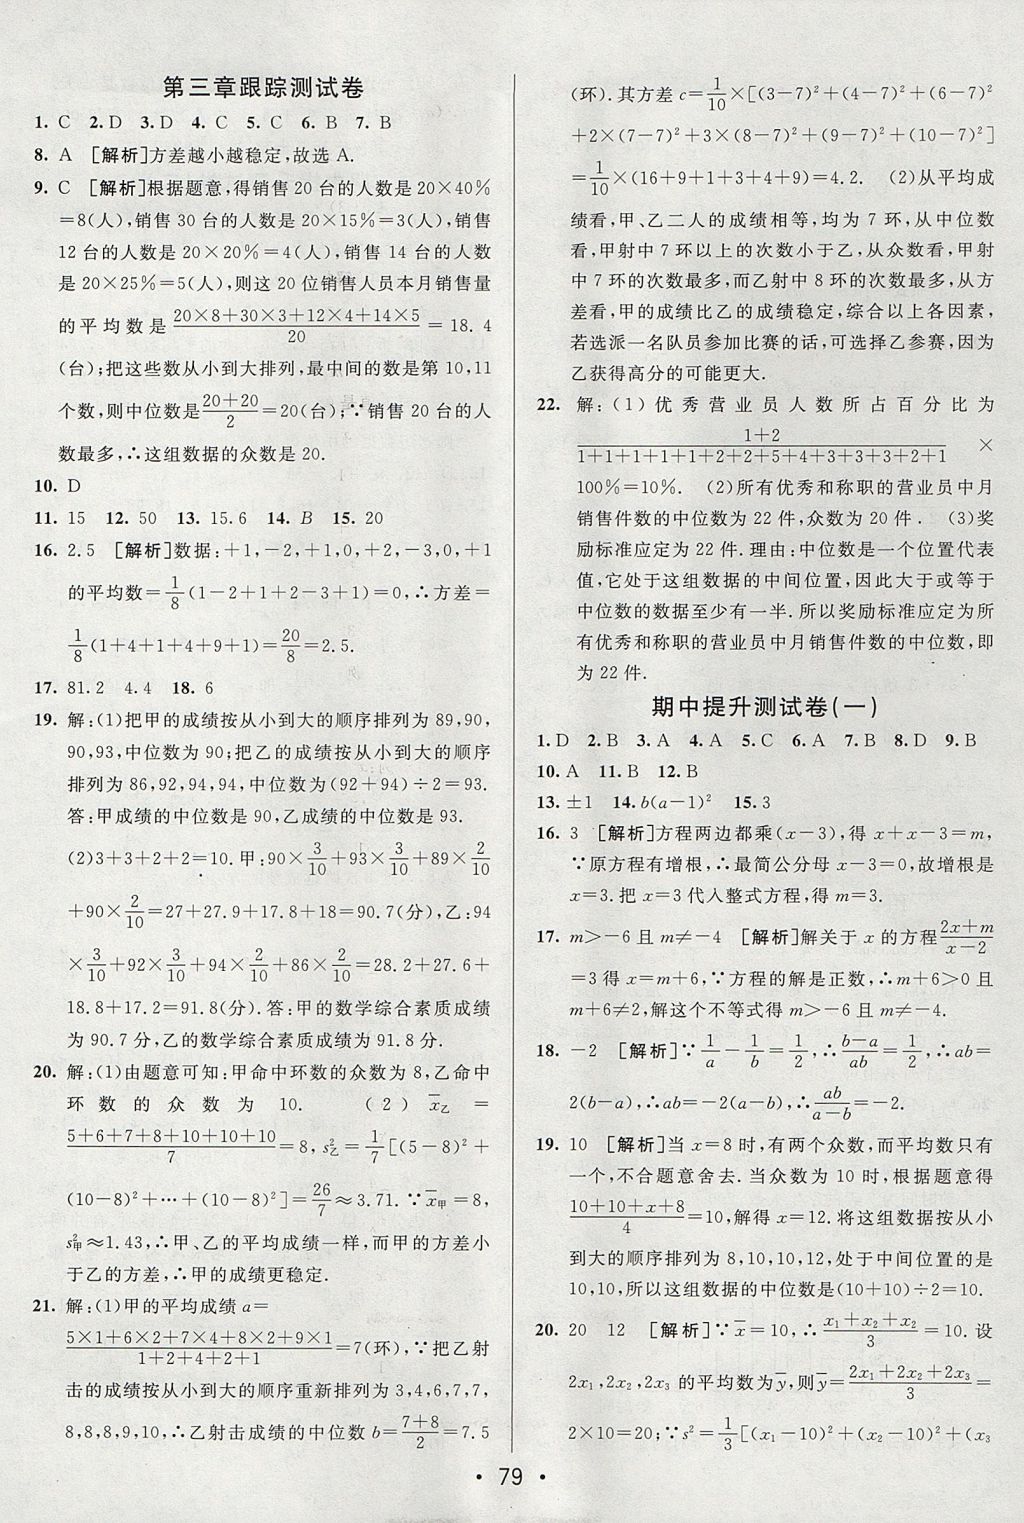 第三章跟踪测试卷
1. C　2. D　3. D　4. C　5. C　6. B　7. B
8. A　[解析]方差越小越稳定,故选 A.
9. C　[解析]根据题意,得销售 20 台的人数是 20×40%
=8(人),销售 30 台的人数是 20×15%=3(人),销售
12 台的人数是 20×20%=4(人),销售 14 台的人数是
20×25%=5(人),则这 20 位销售人员本月销售量
的平均数是 (20×8+30×3+12×4+14×5)/20 =18.4
(台);把这些数从小到大排列,最中间的数是第 10,11
个数,则中位数是 (20+20)/2=20(台);∵销售 20 台的人
数最多,∴这组数据的众数是 20.
10. D
11. 15　12. 50　13. 15.6　14. B　15. 20
16. 2.5　[解析]数据:+1,-2,+1,0,+2,-3,0,+1
的平均数=1/8(1-2+1+2-3+1)=0,∴方差=
1/8(1+4+1+4+9+1)=20/8=2.5.
17. 81.2　4.4　18. 6
19. 解:(1)把甲的成绩按从小到大的顺序排列为 89,90,
90,93,中位数为 90;把乙的成绩按从小到大的顺序
排列为 86,92,94,94,中位数为(92+94)÷2=93.
答:甲成绩的中位数是 90,乙成绩的中位数是 93.
(2)3+3+2+2=10. 甲:90×3/10+93×3/10+89×2/10
+90×2/10=27+27.9+17.8+18=90.7(分),乙:94
×3/10+92×3/10+94×2/10+86×2/10=28.2+27.6+
18.8+17.2=91.8(分). 答:甲的数学综合素质成绩
为 90.7 分,乙的数学综合素质成绩为 91.8 分.
20. 解:(1)由题意可知:甲命中环数的众数为 8,乙命中
环数的众数为 10.　(2) x̄乙=
(5+6+7+8+10+10+10)/7=8,s²乙=1/7[(5-8)²+
(10-8)²+…+(10-8)²]=26/7≈3.71. ∵x̄甲=8,
s²甲≈1.43,∴甲、乙的平均成绩一样,而甲的方差小
于乙的方差,∴甲的成绩更稳定.
21. 解:(1)甲的平均成绩 a=
(5×1+6×2+7×4+8×2+9×1)/(1+2+4+2+1)=7(环),∵把乙射
击的成绩按从小到大的顺序重新排列为 3,4,6,7,7,
8,8,8,9,10,∴乙射击成绩的中位数 b=(7+8)/2=7.5
(环). 其方差 c=1/10×[(3-7)²+(4-7)²+(6-7)²
+2×(7-7)²+3×(8-7)²+(9-7)²+(10-7)²]
=1/10×(16+9+1+3+4+9)=4.2.　(2)从平均成
绩看,甲、乙二人的成绩相等,均为 7 环,从中位数
看,甲射中 7 环以上的次数小于乙,从众数看,甲射
中 7 环的次数最多,而乙射中 8 环的次数最多,从方
差看,甲的成绩比乙的成绩稳定,综合以上各因素,
若选派一名队员参加比赛的话,可选择乙参赛,因为
乙获得高分的可能更大.
22. 解:(1)优秀营业员人数所占百分比为
(1+2)/(1+1+1+1+1+2+2+5+4+3+3+3+2+1) ×
100%=10%.　(2)所有优秀和称职的营业员中月
销售件数的中位数为 22 件,众数为 20 件.　(3)奖
励标准应定为 22 件. 理由:中位数是一个位置代表
值,它处于这组数据的中间位置,因此大于或等于
中位数的数据至少有一半. 所以奖励标准应定为所
有优秀和称职的营业员中月销售件数的中位数,即
为 22 件.
期中提升测试卷(一)
1. D　2. B　3. A　4. A　5. C　6. A　7. B　8. D　9. B
10. A　11. B　12. B
13. ±1　14. b(a-1)²　15. 3
16. 3　[解析]方程两边都乘(x-3),得 x+x-3=m,
∵原方程有增根,∴最简公分母 x-3=0,故增根是
x=3. 把 x=3 代入整式方程,得 m=3.
17. m>-6 且 m≠-4　[解析]解关于 x 的方程(2x+m)/(x-2)
=3 得 x=m+6,∵方程的解是正数,∴m+6>0 且
m+6≠2,解这个不等式得 m>-6 且 m≠-4.
18. -2　[解析]∵1/a-1/b=1/2,∴(b-a)/ab=1/2,∴ab=
2(b-a),∴ab=-2(a-b),∴ab/(a-b)=-2.
19. 10　[解析]当 x=8 时,有两个众数,而平均数只有
一个,不合题意舍去. 当众数为 10 时,根据题意得
(10+10+x+8)/4=10,解得 x=12. 将这组数据按从小
到大的顺序排列为 8,10,10,12,处于中间位置的是
10,10,所以这组数据的中位数是(10+10)÷2=10.
20. 20　12　[解析]∵x̄=10,∴(x₁+x₂+x₃)/3=10. 设
2x₁,2x₂,2x₃ 的平均数为ȳ,则ȳ=(2x₁+2x₂+2x₃)/3=
2×10=20;∵s²=1/3[(x₁-10)²+(x₂-10)²+(x₃
• 79 •